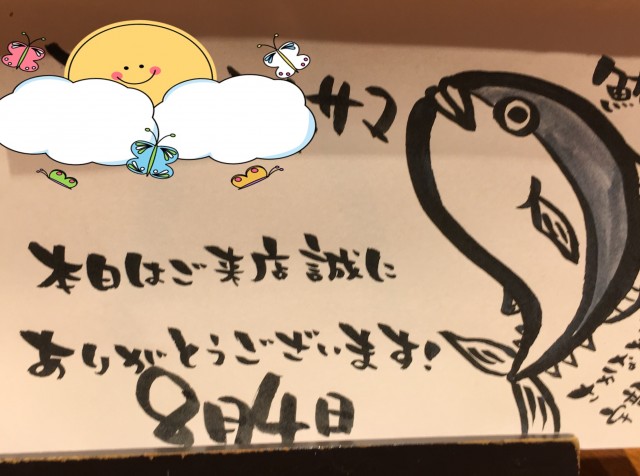 サマ
本日はご来店誠に
ありがとうございます!
8月4日